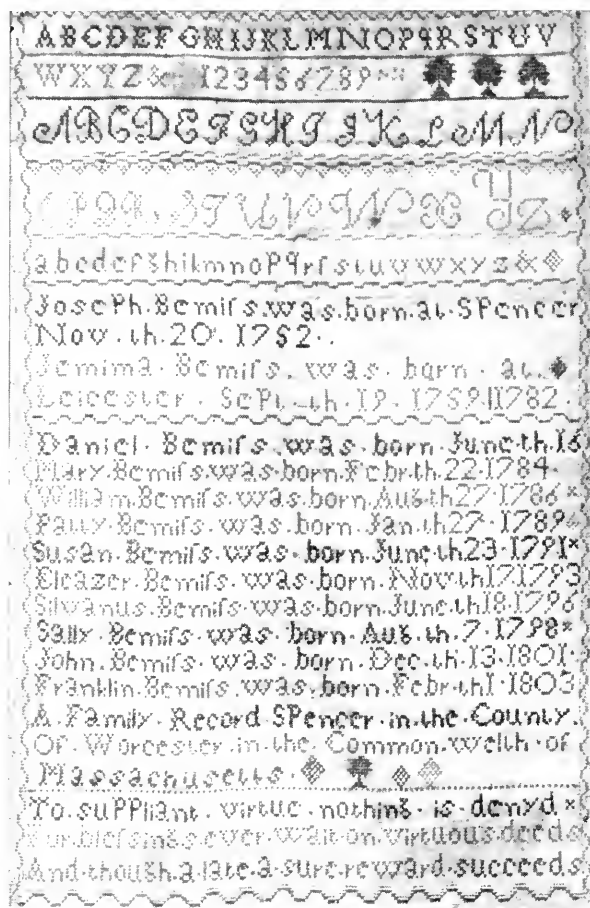 ABCDEFGHIJKLMNOPqRSTUV
WXYZ& 123456789
ABCDEFGHIJKLMN
OPQR STUVWXYZ
abcdefghiklmnoPqrſstuvwxyz&
JosePh·Bemiſs·was·born·at·SPencer
Nov·th·20·1752··
Jemima·Bemiſs·was·born·at·
Leicester·SePt·th·19·1759|1782
Daniel·Bemiſs·was·born·June·th·16
Mary·Bemiſs·was·born·Febr·th·22·1784·
William·Bemiſs·was·born·Aug·th27·1786×
Patty·Bemiſs·was·born·Jan·th27·1789
Susan·Bemiſs·was·born·June·th23·1791×
Eleazer·Bemiſs·was·born·Nov·th171793
Silvanus·Bemiſs·was·born·June·th18·1796
Sally·Bemiſs·was·born·Aug·th·7·1798×
John·Bemiſs·was·born·Dec·th·13·1801·
Franklin·Bemiſs·was·born·Febr·th1·1803
A·Family·Record·SPencer·in·the·County·
Of·Worcester·in·the·Common·welth·of
Massachusetts·
To·suPPliant·virtue·nothing·is·denyd×
bleſsings·ever·wait·on·virtuous·deeds
And·though·a·late·a·sure·reward·succeeds